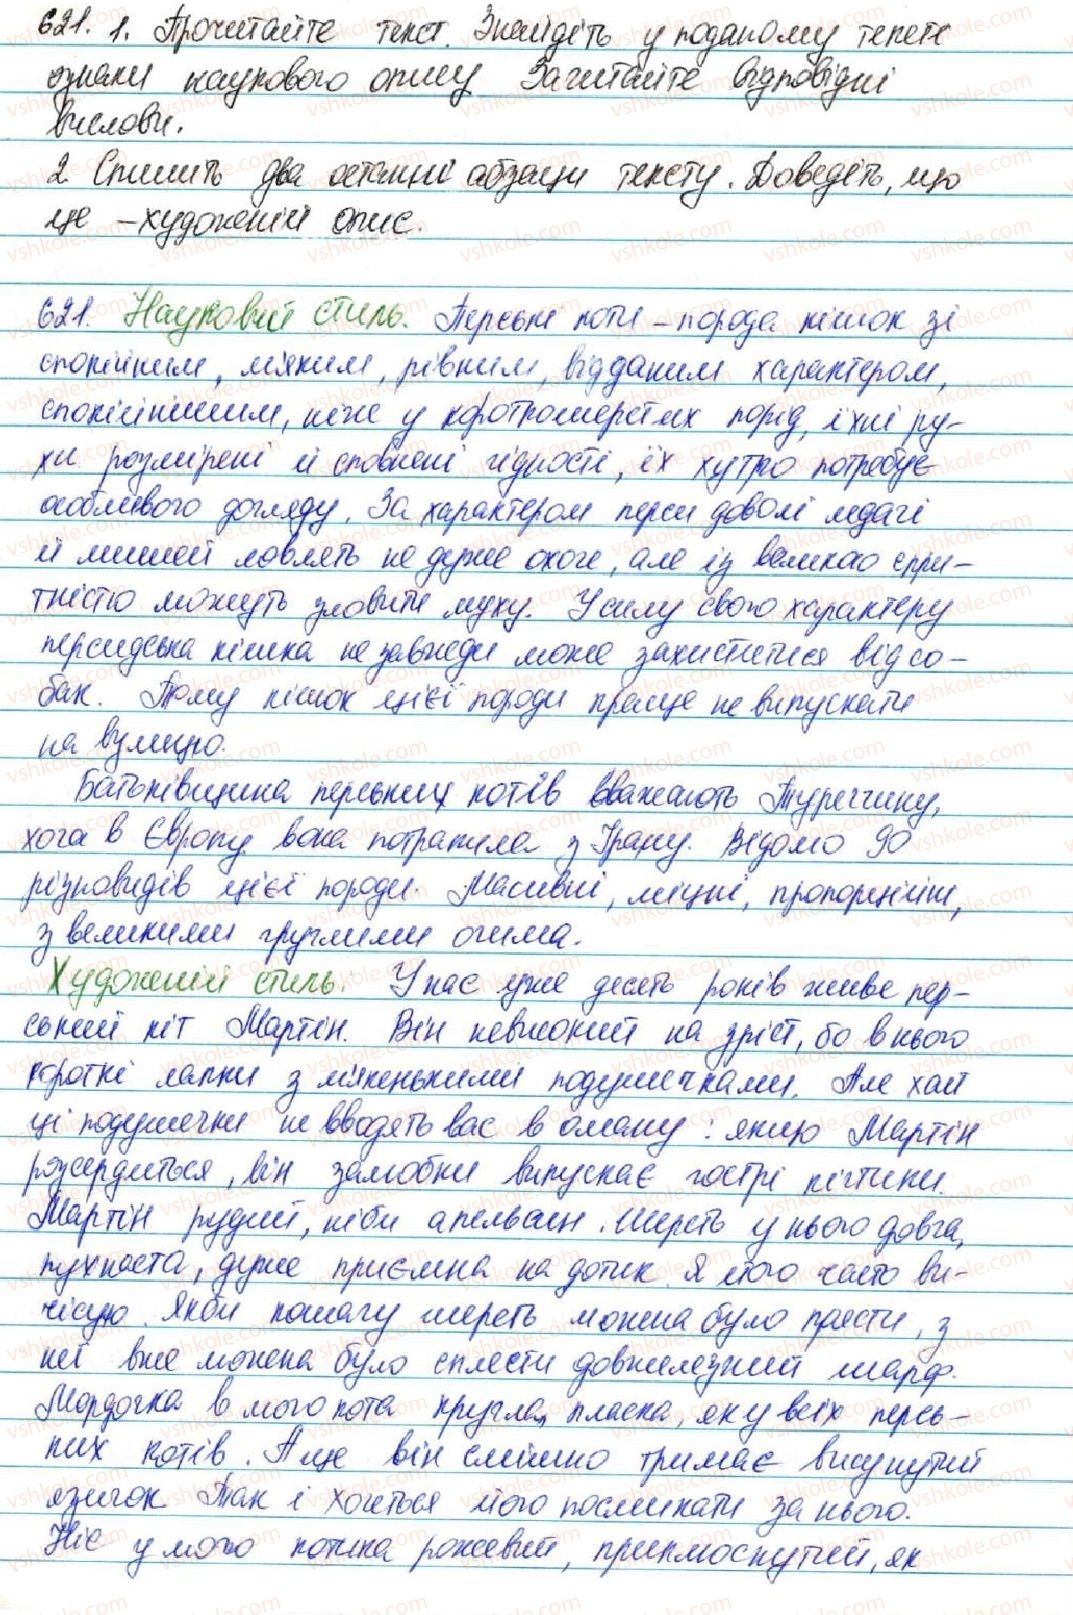 621. 1. Прочитайте текст. Знайдіть у поданому тексті
ознаки наукового опису. Зачитайте відповідні
вислови.
2 Спишіть два останні абзаци тексту. Доведіть, що
це – художній опис.
621. Науковий стиль. Перські коти – порода кішок зі
спокійним, м'яким, рівним, відданим характером,
спокійнішим, ніж у короткошерстих порід, їхні ру-
хи розмірені й сповнені гідності, їх хутро потребує
особливого догляду. За характером перси доволі ледачі
й мишей ловлять не дуже охоче, але із великою спри-
тністю можуть зловити муху. У силу свого характеру
персидська кішка не завжди може захиститися від со-
бак. Тому кішок цієї породи краще не випускати
на вулицю.
Батьківщина перських котів вважають Туреччину,
хоча в Європу вона потрапила з Ірану. Відомо 90
різновидів цієї породи. Масивні, міцні, пропорційні,
з великими круглими очима.
Художній стиль. У нас уже десять років живе пер-
ський кіт Мартін. Він невисокий на зріст, бо в нього
короткі лапки з м'якенькими подушечками. Але хай
ці подушечки не вводять вас в оману: якщо Мартін
розсердиться, він залюбки випускає гострі кігтики.
Мартін рудий, ніби апельсин. Шерсть у нього довга,
пухнаста, дуже приємна на дотик. Я його часто ви-
чісую. Якби котячу шерсть можна було прясти, з
неї вже можна було сплести довжелезний шарф.
Мордочка в мого кота кругла, пласка, як у всіх персь-
ких котів. А ще він смішно тримає висунутий
язичок Так і хочеться його посмикати за нього.
Ніс у мого котика рожевий, приплюснутий, як